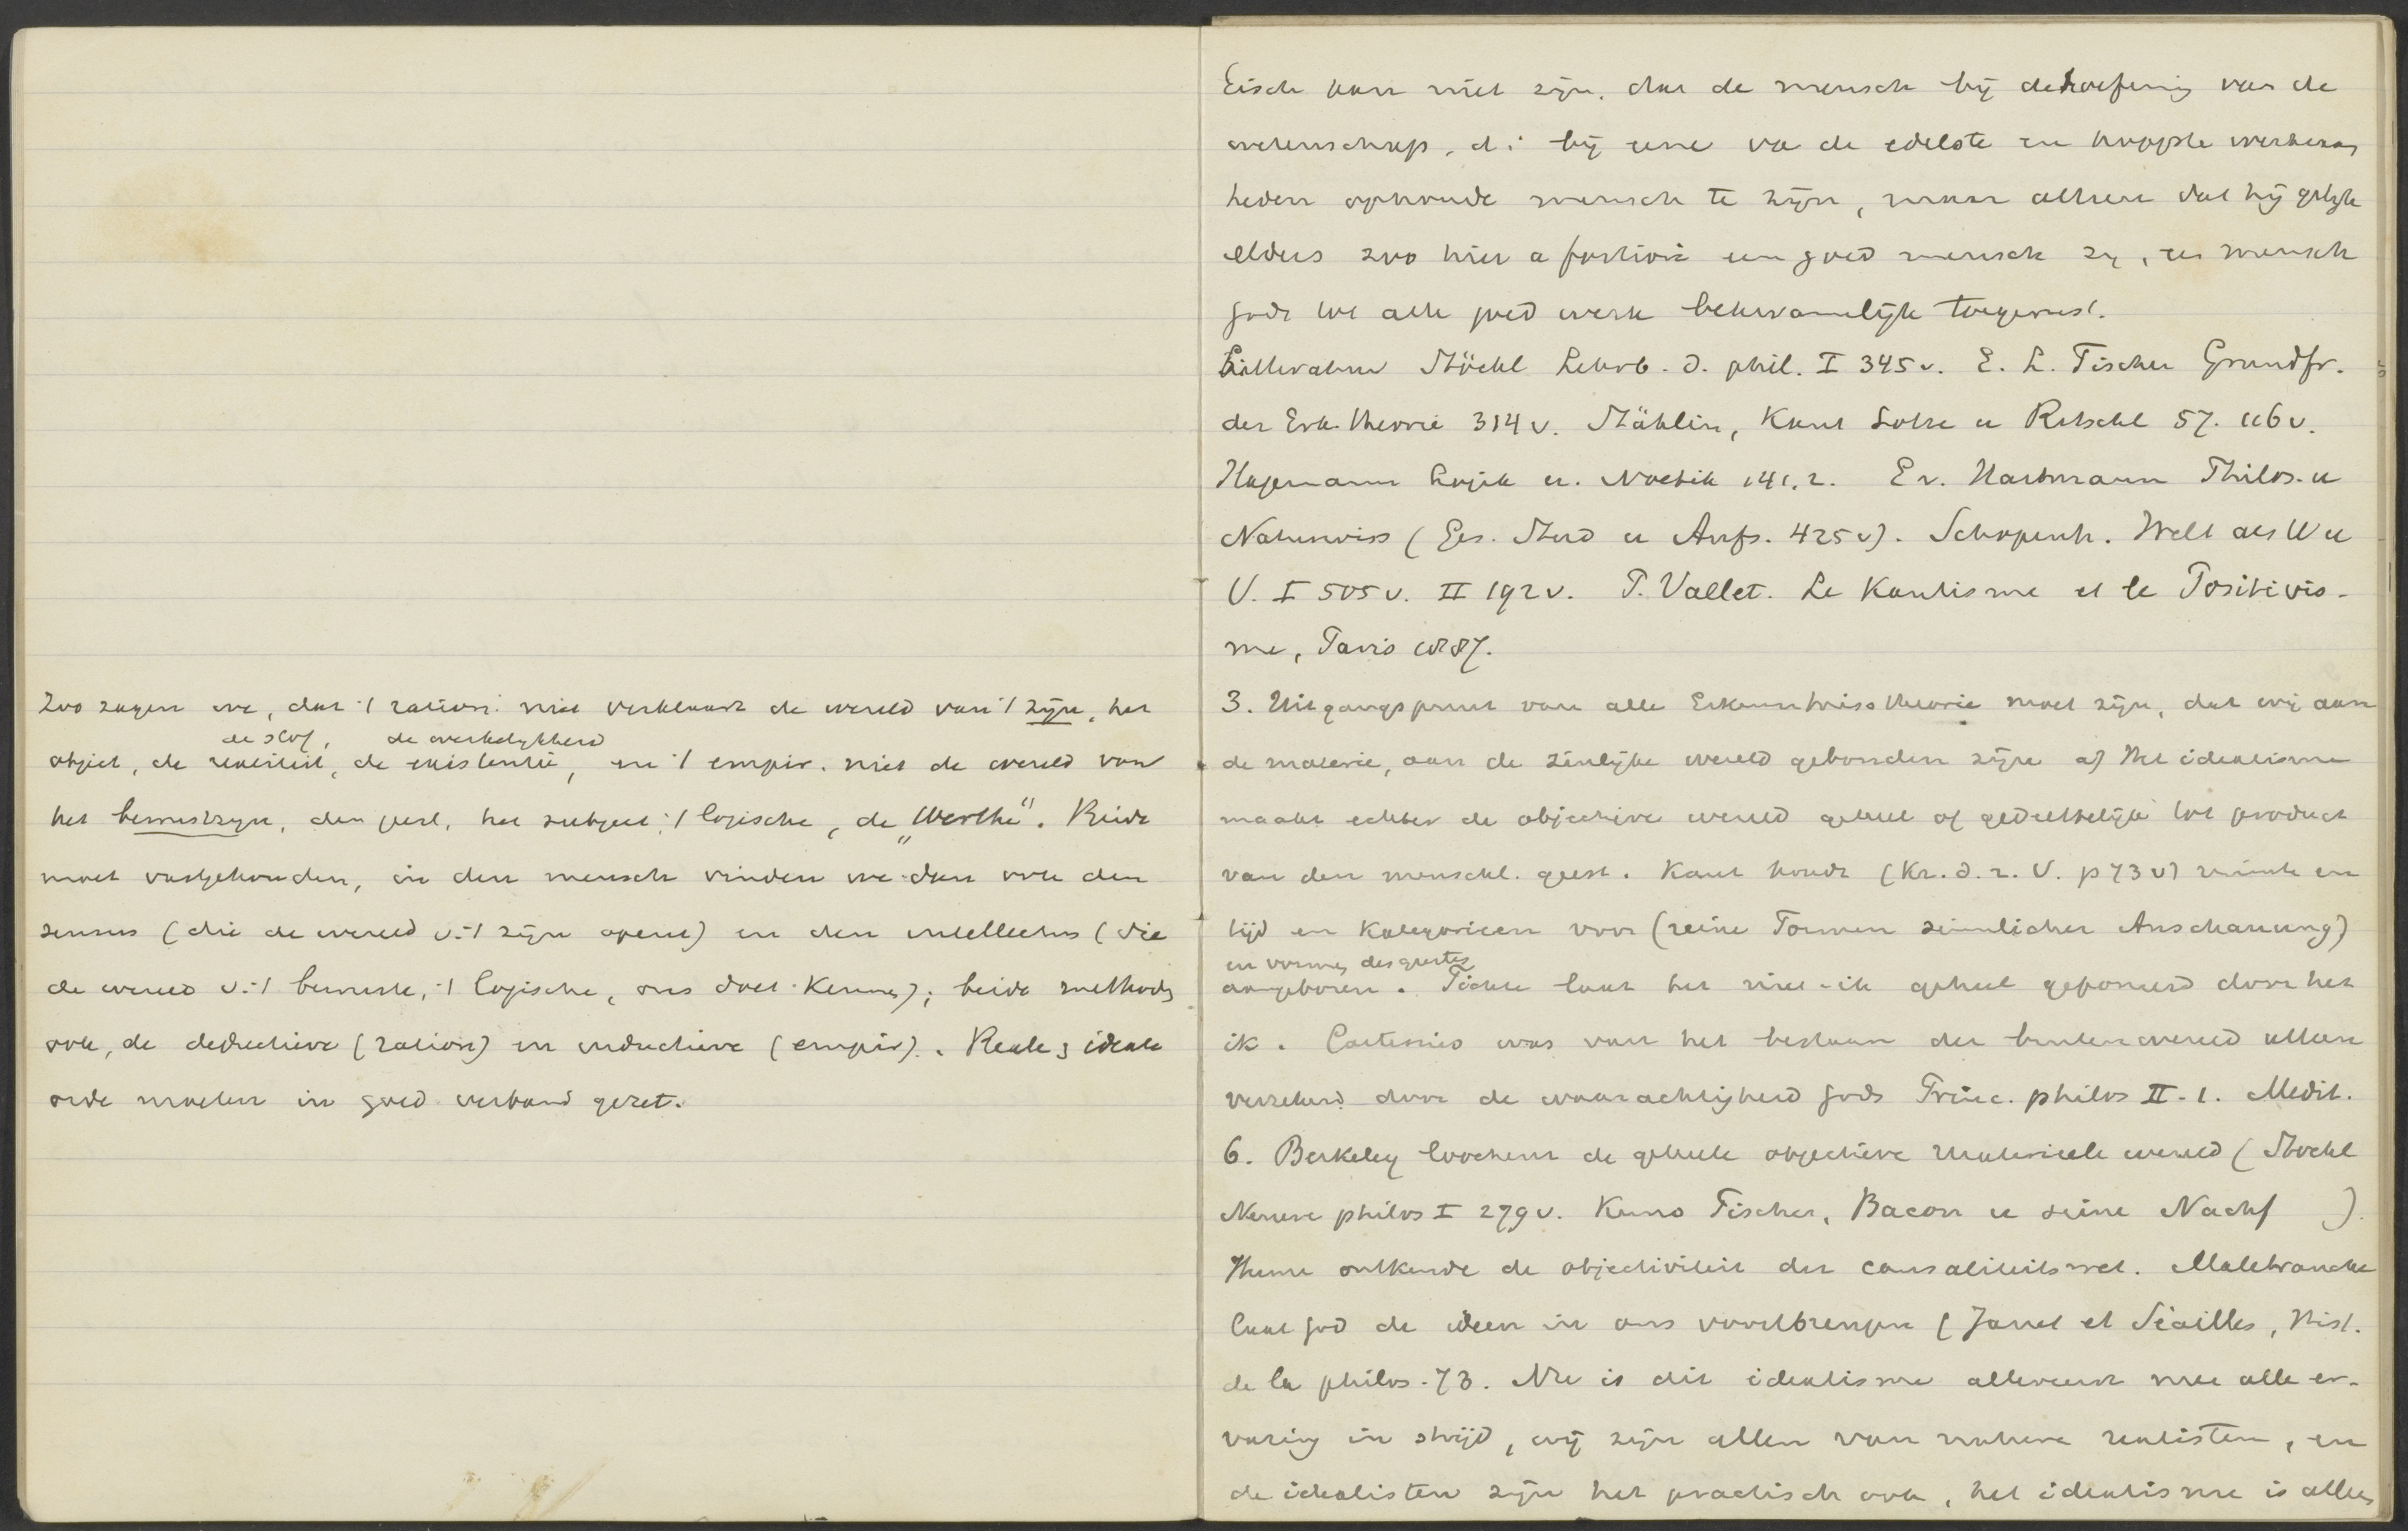 Zoo zagen we, dat 't ration. niet verklaart de wereld van 't zijn, het
de stof, de werkelykheid
object, de realiteit, de existentie, en 't empir. niet de wereld van
het bewustzyn, den geest, het subject, 't logische, de „Werthe". Beide
moet vastgehouden, in den mensch vinden we dan ook den
sensus (die de wereld v. 't zijn opent) en den intellectus (die
de wereld v. 't bewuste, 't logische, ons doet kennen); beide methods
ook, de deductieve (ration) en inductieve (empir). Reale & ideale
orde moeten in goed verband gezet.
Eisch kan niet zijn, dat de mensch bij de beoefening van de
wetenschap, d.i. bij eene va de edelste en hoogste werkzaam
heden ophoude mensch te zijn, maar alleen dat hij gelijk
elders zoo hier a fortiori een goed mensch zy, een mensch
Gods tot alle goed werk bekwamelijk toegerust.
Litteratuur Stöckl Lehrb. d. phil. I 345 v. E. L. Fischer Grundfr.
der Erk.theorie 314 v. Stählin, Kant Lotze u Ritschl 57. 116 v.
Hagemann Logik u. Noetik 141.2. E v. Hartmann Philos. u
Naturwiss (Ges. Stud u Aufs. 425 v). Schopenh. Welt als W u
V. I 505 v. II 192 v. P. Vallet. Le Kantisme et le Positivis-
me, Paris 1887.
3. Uitgangspunt van alle Erkenntnisstheorie moet zijn, dat wij aan
de materie, aan de zinlijke wereld gebonden zijn a) Het idealisme
maakt echter de objectieve wereld geheel of gedeeltelijk tot product
van den menschl. geest. Kant houdt (Kr. d. r. V. p 73 v) ruimte en
tijd en kategorieen voor (reine Formen sinnlicher Anschauung)
en vormen des geestes
aangeboren. Fichte laat het niet-ik geheel geponeerd door het
ik. Cartesius was van het bestaan der buitenwereld alleen
verzekerd door de waarachtigheid Gods Princ. philos II-1. Medit.
6. Berkeley loochent de geheele objectieve materieele wereld (Stockl
Neuere philos I 279 v. Kuno Fischer, Bacon u seine Nachf ).
Hume ontkende de objectiviteit der causaliteitswet. Malebranche
laat God de ideen in ons voortbrengen (Janet et Séailles, Hist.
de la philos. 73. Nu is dit idealisme allereerst met alle er-
varing in strijd, wij zijn allen van nature realisten, en
de idealisten zijn het practisch ook, het idealisme is alles